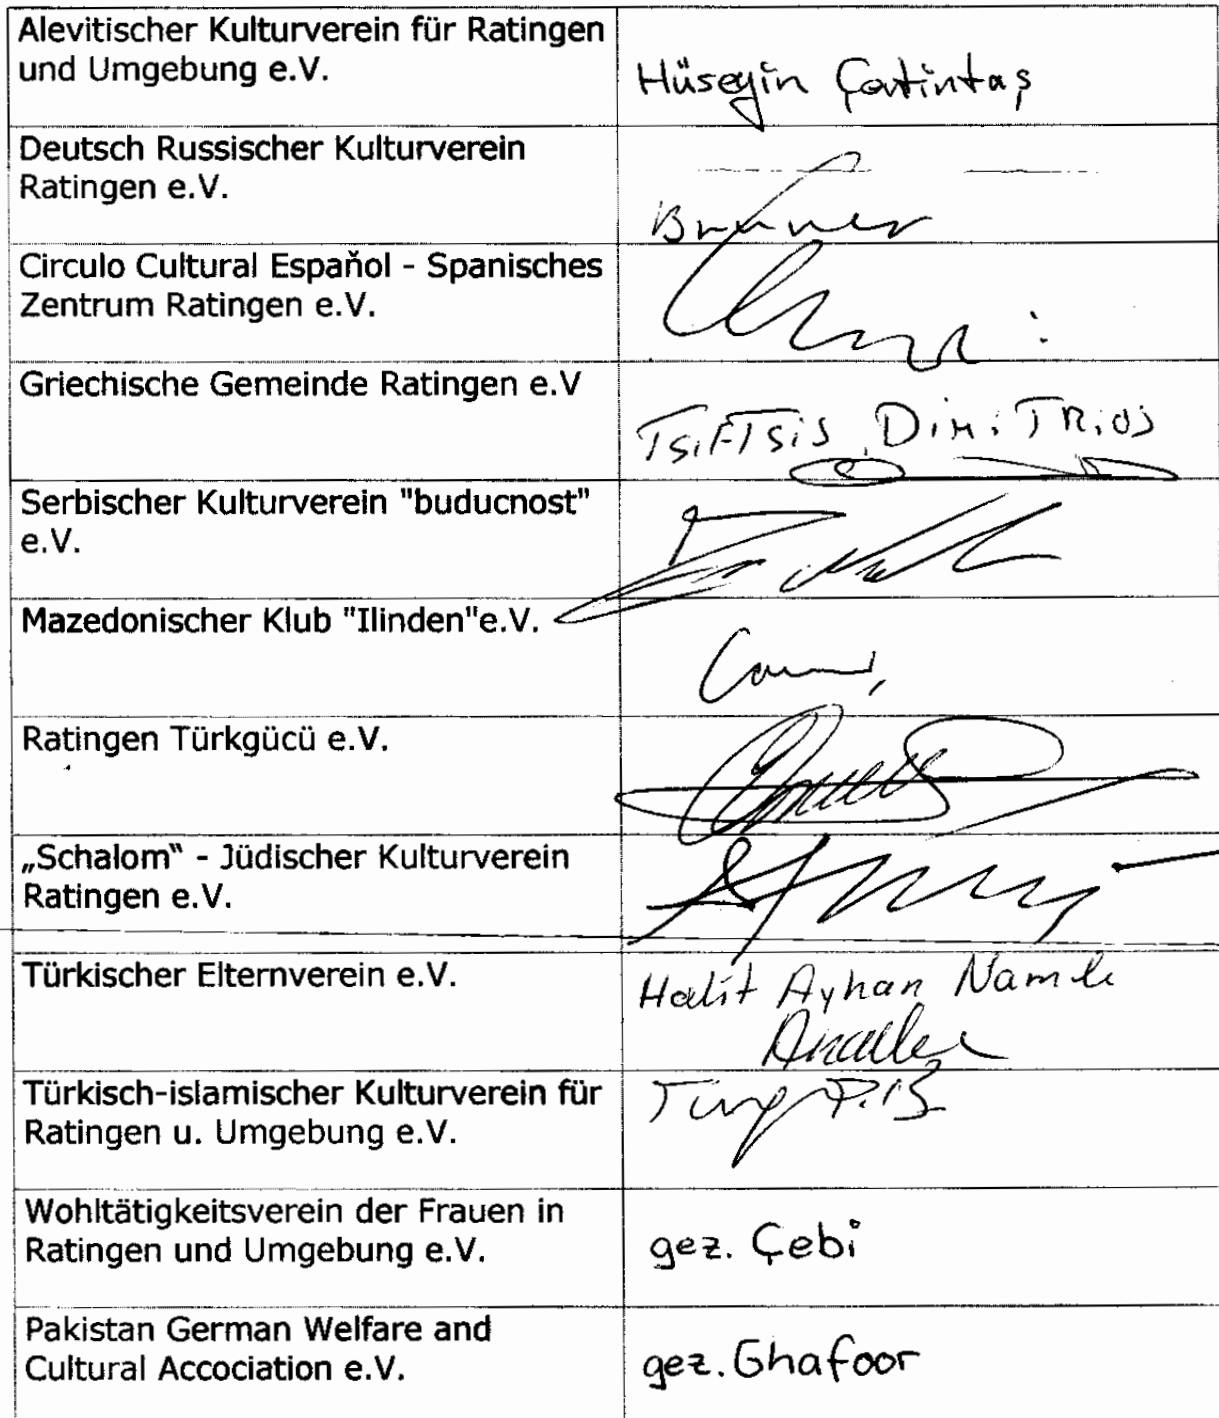 Alevitischer Kulturverein für Ratingen
und Umgebung e.V.
Hüseyin Çatintaş
Deutsch Russischer Kulturverein
Ratingen e.V.
Circulo Cultural Espaňol - Spanisches
Zentrum Ratingen e.V.
Griechische Gemeinde Ratingen e.V
TsiFTsis DiMiTRiOs
Serbischer Kulturverein "buducnost"
e.V.
Mazedonischer Klub "Ilinden"e.V.
Ratingen Türkgücü e.V.
„Schalom“ - Jüdischer Kulturverein
Ratingen e.V.
Türkischer Elternverein e.V.
Halit Ayhan Namli
Türkisch-islamischer Kulturverein für
Ratingen u. Umgebung e.V.
Wohltätigkeitsverein der Frauen in
Ratingen und Umgebung e.V.
gez. Çebi
Pakistan German Welfare and
Cultural Accociation e.V.
gez. Ghafoor